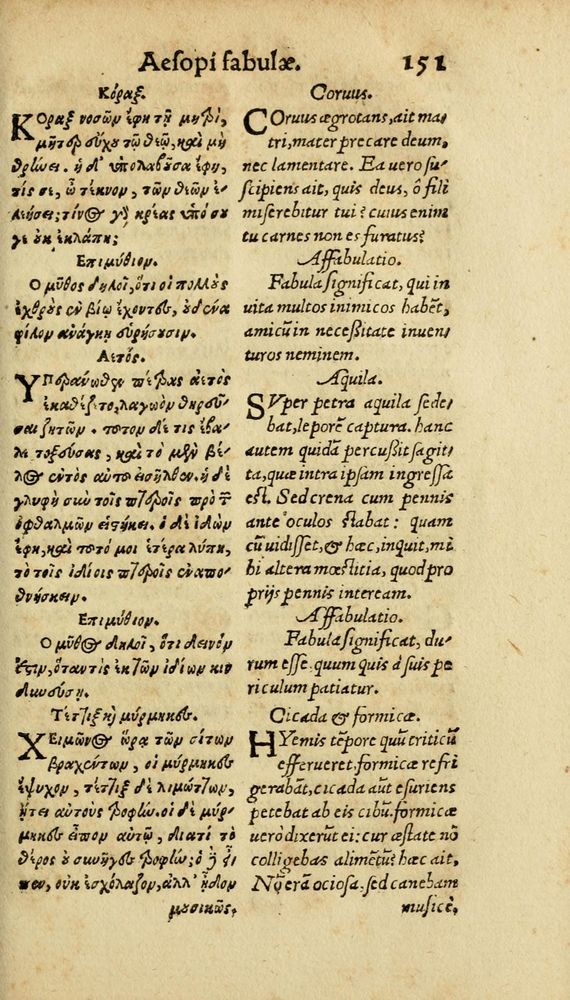 Aesopi fabulæ. 151
Κόραξ.
ΚΟραξ νοσῶν ἔφη τῇ μητρὶ,
μῆτερ εὔχου τῷ θεῷ, καὶ μὴ
θρήνει. ἡ δ' ὑπολαβοῦσα ἔφη,
τίς σε, ὦ τέκνον, τῶν θεῶν ἐ-
λεήσει; τίνος γὰρ κρέας ὑπό σου
γε οὐκ ἐκλάπη;
Επιμύθιον.
Ο μῦθος δηλοῖ, ὅτι οἱ πολλοὺς
ἐχθροὺς ἐν βίῳ ἔχοντες, οὐδένα
φίλον ἀνάγκῃ εὑρήσουσιν.
Αετός.
ΥΠεράνωθεν πέτρας ἀετὸς
ἐκαθέζετο, λαγωὸν θηρεῦ-
σαι ζητῶν. τοῦτον δέ τις ἔβα-
λε τοξεύσας, καὶ τὸ μὲν βέ-
λος ἐντὸς αὐτοῦ εἰσῆλθεν. ἡ δὲ
γλυφὴ σὺν τοῖς πτεροῖς πρὸ τῶν
ὀφθαλμῶν εἱστήκει. ὁ δὲ ἰδὼν
ἔφη, καὶ τοῦτό μοι ἑτέρα λύπη,
τὸ τοῖς ἰδίοις πτεροῖς ἐναπο-
θνήσκειν.
Επιμύθιον.
Ο μῦθος δηλοῖ, ὅτι δεινόν
ἐστιν, ὅταν τὶς ἐκ τῶν ἰδίων κιν
δυνεύσῃ.
Τέτλιξ καὶ μύρμηκες.
ΧΕιμῶνος ὥρᾳ τῶν σίτων
βραχέντων, οἱ μύρμηκες
ἔψυχον, τέτλιξ δὲ λιμώτλων,
ᾔτει αὐτοὺς τροφήν. οἱ δὲ μύρ-
μηκες εἶπον αὐτῷ, διατί τὸ
θέρος οὐ συνῆγες τροφήν; ὁ δὲ εἶ-
πεν, οὐκ ἐσχόλαζον, ἀλλ' ᾖδον
μουσικῶς.
Coruus.
COruus ægrotans, ait ma/
tri, mater precare deum,
nec lamentare. Ea uero su/
scipiens ait, quis deus, ô fili
miserebitur tui? cuius enim
tu carnes non es furatus?
Affabulatio.
Fabula significat, qui in
uita multos inimicos habēt,
amicū in necessitate inuen/
turos neminem.
Aquila.
SVper petra aquila sede/
bat, leporē captura. hanc
autem quidā percussit sagit/
ta, quæ intra ipsam ingressa
est. Sed crena cum pennis
ante oculos stabat: quam
cū uidisset, & hæc, inquit, mi
hi altera mœstitia, quod pro
prijs pennis intereum.
Affabulatio.
Fabula significat, du/
rum esse. quum quis à suis pe
riculum patiatur.
Cicada & formicæ.
HYemis tēpore quū triticū
efferueret, formicæ refri
gerabāt, cicada aūt esuriens
petebat ab eis cibū. formicæ
uerò dixerūt ei: cur æstate nō
colligebas alimētū? hæc ait,
Nō erā ociosa. sed canebam
musicè,